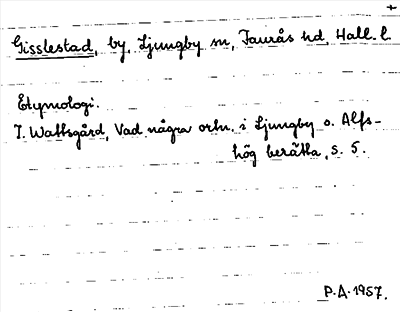 +
Gisslestad, by, Ljungby sn, Faurås hd, Hall. l.
Etymologi.
J. Wattsgård, Vad några ortn. i Ljungby o. Alfs-
hög berätta, s. 5.
P.A. 1957.